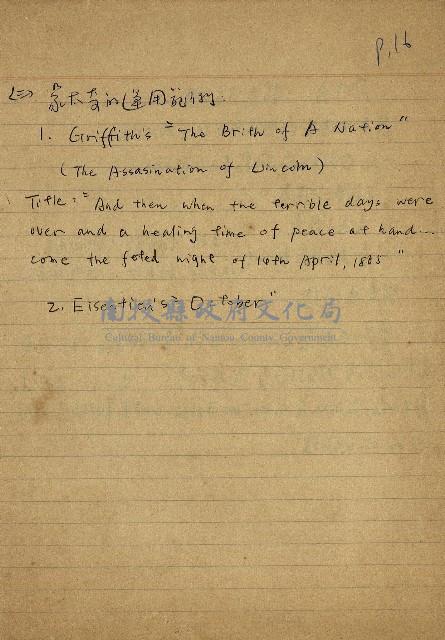 P.16
<二> 蒙太奇的運用範例:
1. Griffith's "The Brith of A Nation"
(The Assasination of Lincoln)
Title: "And then when the terrible days were
over and a healing time of peace at hand...
come the foted night of 14th April, 1865"
2. Eisentien's "October"
南投縣政府文化局
Cultural Bureau of Nantou County Government